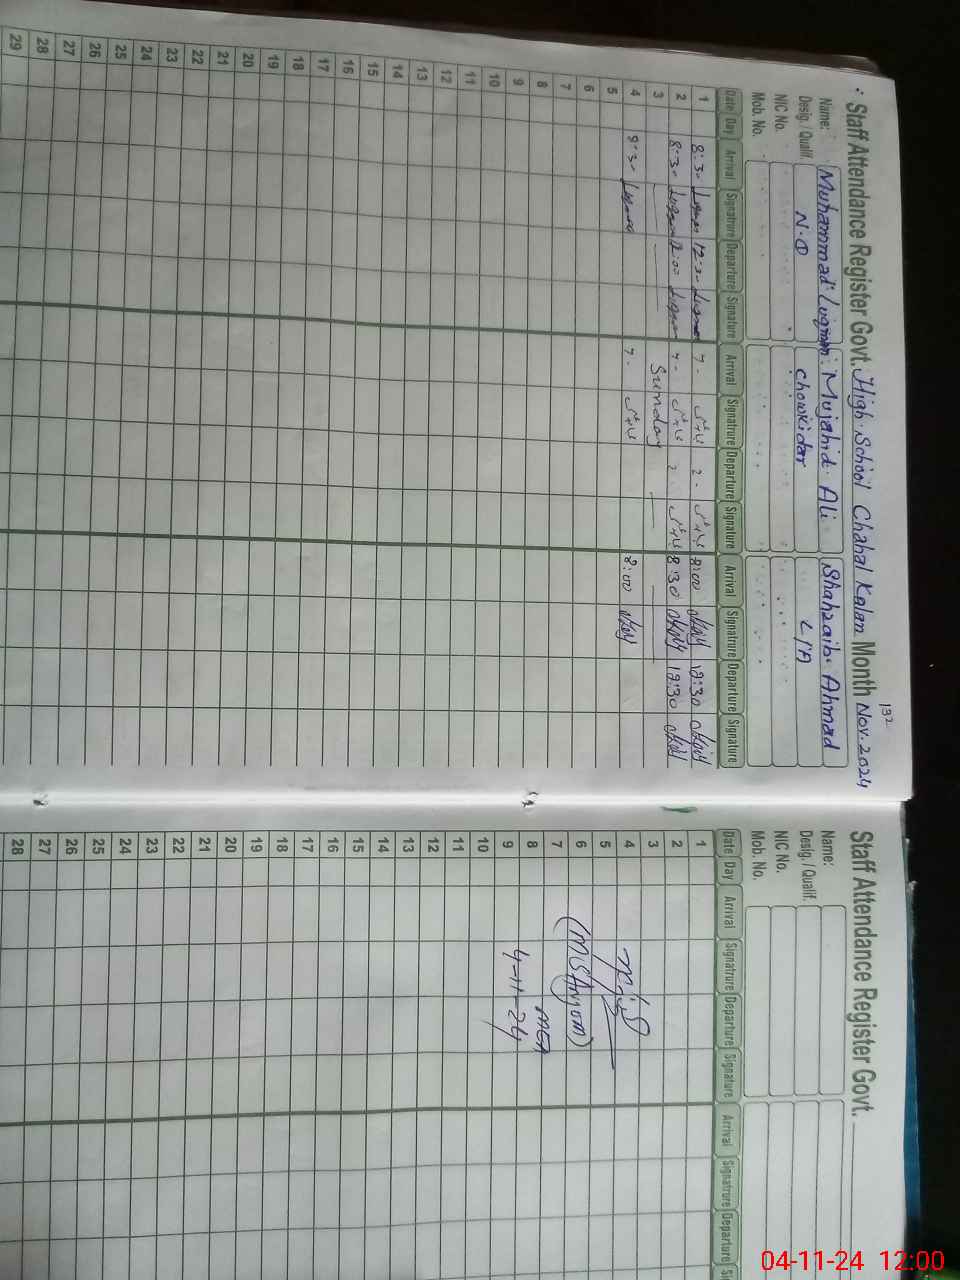 132
Staff Attendance Register Govt. High School Chahal Kalan Month Nov. 2024
Name: Muhammad Luqman Mujahid Ali Shahzaib Ahmad
Desig. / Qualif. N.Q Chowkidar L/A
NIC No.
Mob. No.
Date Day Arrival Signatrure Departure Signature Arrival Signatrure Departure Signature Arrival Signatrure Departure Signature
1 8:30 Luqman 12:30 Luqman 7- 2- 8:00 12:30
2 8:30 Luqman 12:00 Luqman 7- 2- 8:30 12:30
3 Sunday
4 Luqman 7- 8:00
5
6
7
8
9
10
11
12
13
14
15
16
17
18
19
20
21
22
23
24
25
26
27
28
29
Staff Attendance Register Govt.
Name:
Desig. / Qualif.
NIC No.
Mob. No.
Date Day Arrival Signatrure Departure Signature Arrival Signatrure Departure
1
2
3
4
5
6
7
8
9
10
11
12
13
14
15
16
17
18
19
20
21
22
23
24
25
26
27
28
(MS Anjom)
MEA
4-11-24
04-11-24 12:00